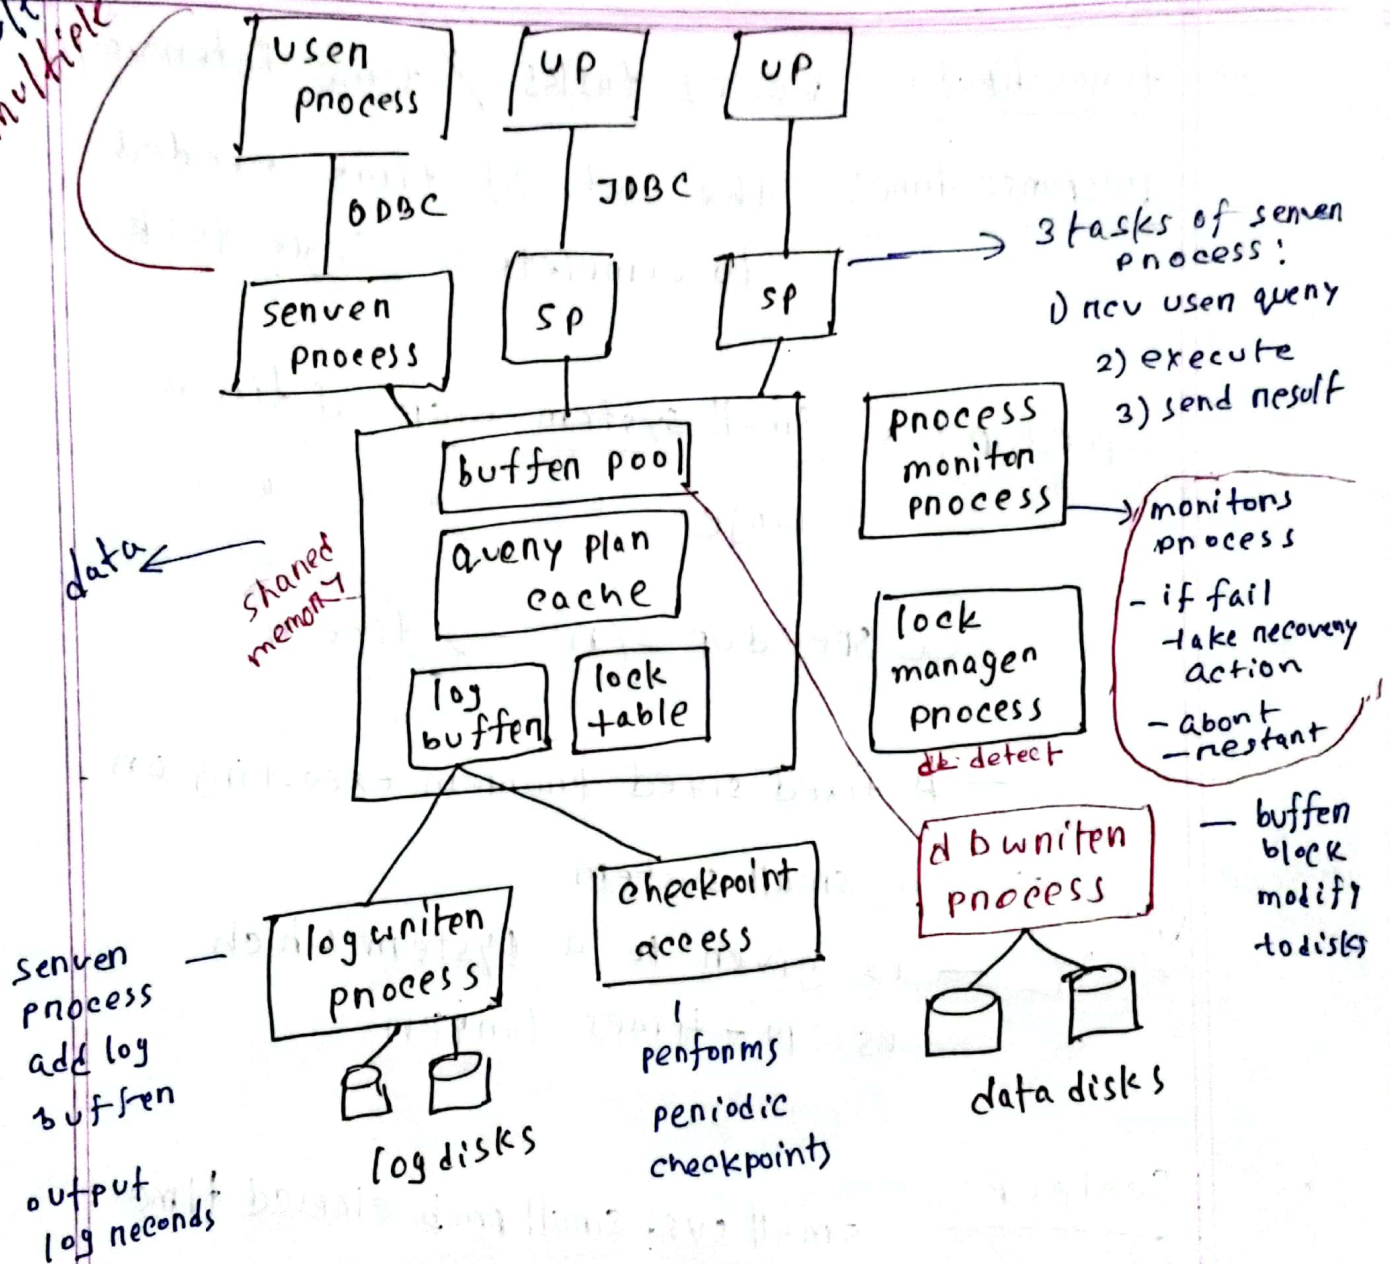 multiple
user
process
UP
UP
ODBC
JDBC
server
process
SP
SP
3 tasks of server
process:
1) rcv user query
2) execute
3) send result
buffer pool
query plan
cache
log
buffer
lock
table
shared
memory
data
process
monitor
process
monitors
process
- if fail
take recovery
action
- abort
- restart
lock
manager
process
detect
db writer
process
- buffer
block
modify
to disks
data disks
log writer
process
log disks
server
process
add log
buffer
output
log records
checkpoint
access
performs
periodic
checkpoints